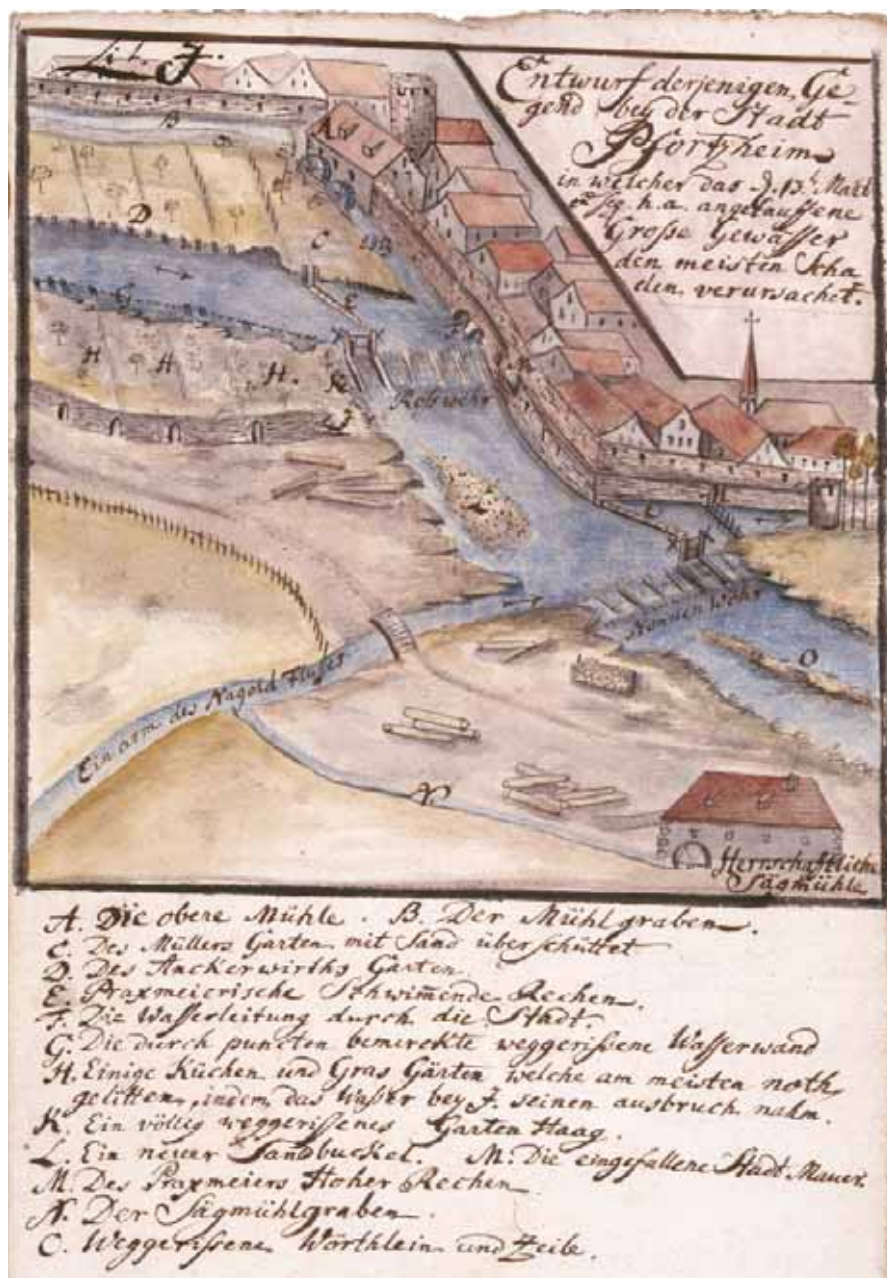 Lit. J.
Entwurf derjenigen Ge-
gend bey der Stadt
Pfortzheim
in welcher das d. 13t. Mart
h. a. angelauffene
Große Gewässer
den meisten Scha
den verursachet.
A
B
D
C
G
E
H H H.
K
J
Roßwehr
L
Nonnen Wöhr
O
Ein arm des Nagold Flußes
N
Herrschaftliche
Sägmühle
A. Die obere Mühle. B. Der Mühlgraben.
C. Des Müllers Garten mit Sand überschüttet
D. Des Anckerwirths Garten
E. Praxmeierische Schwim̄ende Rechen.
F. Die Wasserleitung durch die Stadt.
G. Die durch puncten bemerckte weggerißene Wasserwand
H. Einige Küchen und Gras Gärten welche am meisten noth
gelitten, indem das Waßer bey J. seinen ausbruch nahm.
K. Ein völlig weggerißenes Garten Haag.
L. Ein neuer Sandbuckel. M. Die eingefallene Stadt Mauer.
M. Des Praxmeiers Hoher Rechen
N. Der Sägmühlgraben.
O. Weggerißene Wörthlein und Zeile.